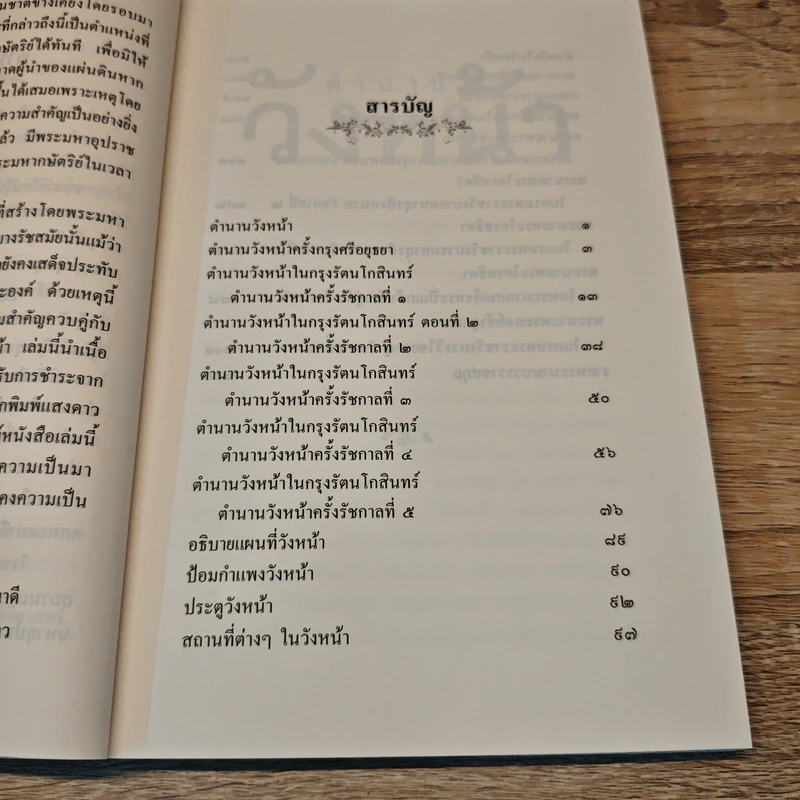 นชาติข้างเคียงโดยรอบมา
ที่กล่าวถึงนี้เป็นตำแหน่งที่
ษัตริย์ได้ทันที เพื่อมิให้
าดผู้นำของแผ่นดินหาก
ึ้นได้เสมอเพราะเหตุโดย
ความสำคัญเป็นอย่างยิ่ง
ล้ว มีพระมหาอุปราช
ระมหากษัตริย์ในเวลา
ที่สร้างโดยพระมหา
บางรัชสมัยนั้นแม้ว่า
ยังคงเสด็จประทับ
ะองค์ ด้วยเหตุนี้
มสำคัญควบคู่กับ
น้า เล่มนี้นำเนื้อ
รับการชำระจาก
กพิมพ์แสงดาว
์หนังสือเล่มนี้
ความเป็นมา
คงความเป็น
าดี
าว
สารบัญ
ตำนานวังหน้า ๑
ตำนานวังหน้าครั้งกรุงศรีอยุธยา ๓
ตำนานวังหน้าในกรุงรัตนโกสินทร์
ตำนานวังหน้าครั้งรัชกาลที่ ๑ ๑๓
ตำนานวังหน้าในกรุงรัตนโกสินทร์ ตอนที่ ๒
ตำนานวังหน้าครั้งรัชกาลที่ ๒ ๓๘
ตำนานวังหน้าในกรุงรัตนโกสินทร์
ตำนานวังหน้าครั้งรัชกาลที่ ๓ ๕๐
ตำนานวังหน้าในกรุงรัตนโกสินทร์
ตำนานวังหน้าครั้งรัชกาลที่ ๔ ๕๖
ตำนานวังหน้าในกรุงรัตนโกสินทร์
ตำนานวังหน้าครั้งรัชกาลที่ ๕ ๗๖
อธิบายแผนที่วังหน้า ๘๙
ป้อมกำแพงวังหน้า ๙๐
ประตูวังหน้า ๙๒
สถานที่ต่างๆ ในวังหน้า ๙๗